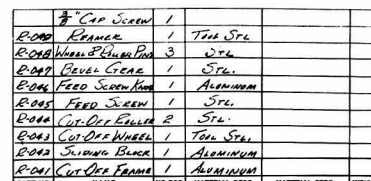 3/8" CAP SCREW 1
REAMER 1 TOOL STL
R-048 WHEEL & ROLLER PINS 3 STL
R-047 BEVEL GEAR 1 STL.
R-046 FEED SCREW KNOB 1 ALUMINUM
R-045 FEED SCREW 1 STL.
R-044 CUT-OFF ROLLER 2 STL.
R-043 CUT-OFF WHEEL 1 TOOL STL.
R-042 SLIDING BLOCK 1 ALUMINUM
R-041 CUT OFF FRAME 1 ALUMINUM